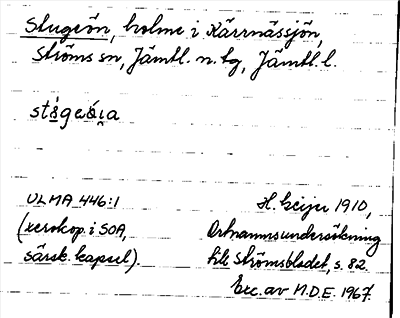 Stugeön, holme i Kärrnässjön,
Ströms sn, Jämtl. n. tg, Jämtl. l.
ULMA 446:1
(xerokop. i SOA,
särsk. kapsel).
H. Geijer 1910,
Ortnamnsundersökning
Strömsbladet, s. 82.
Exc. av M.D.E. 1967.